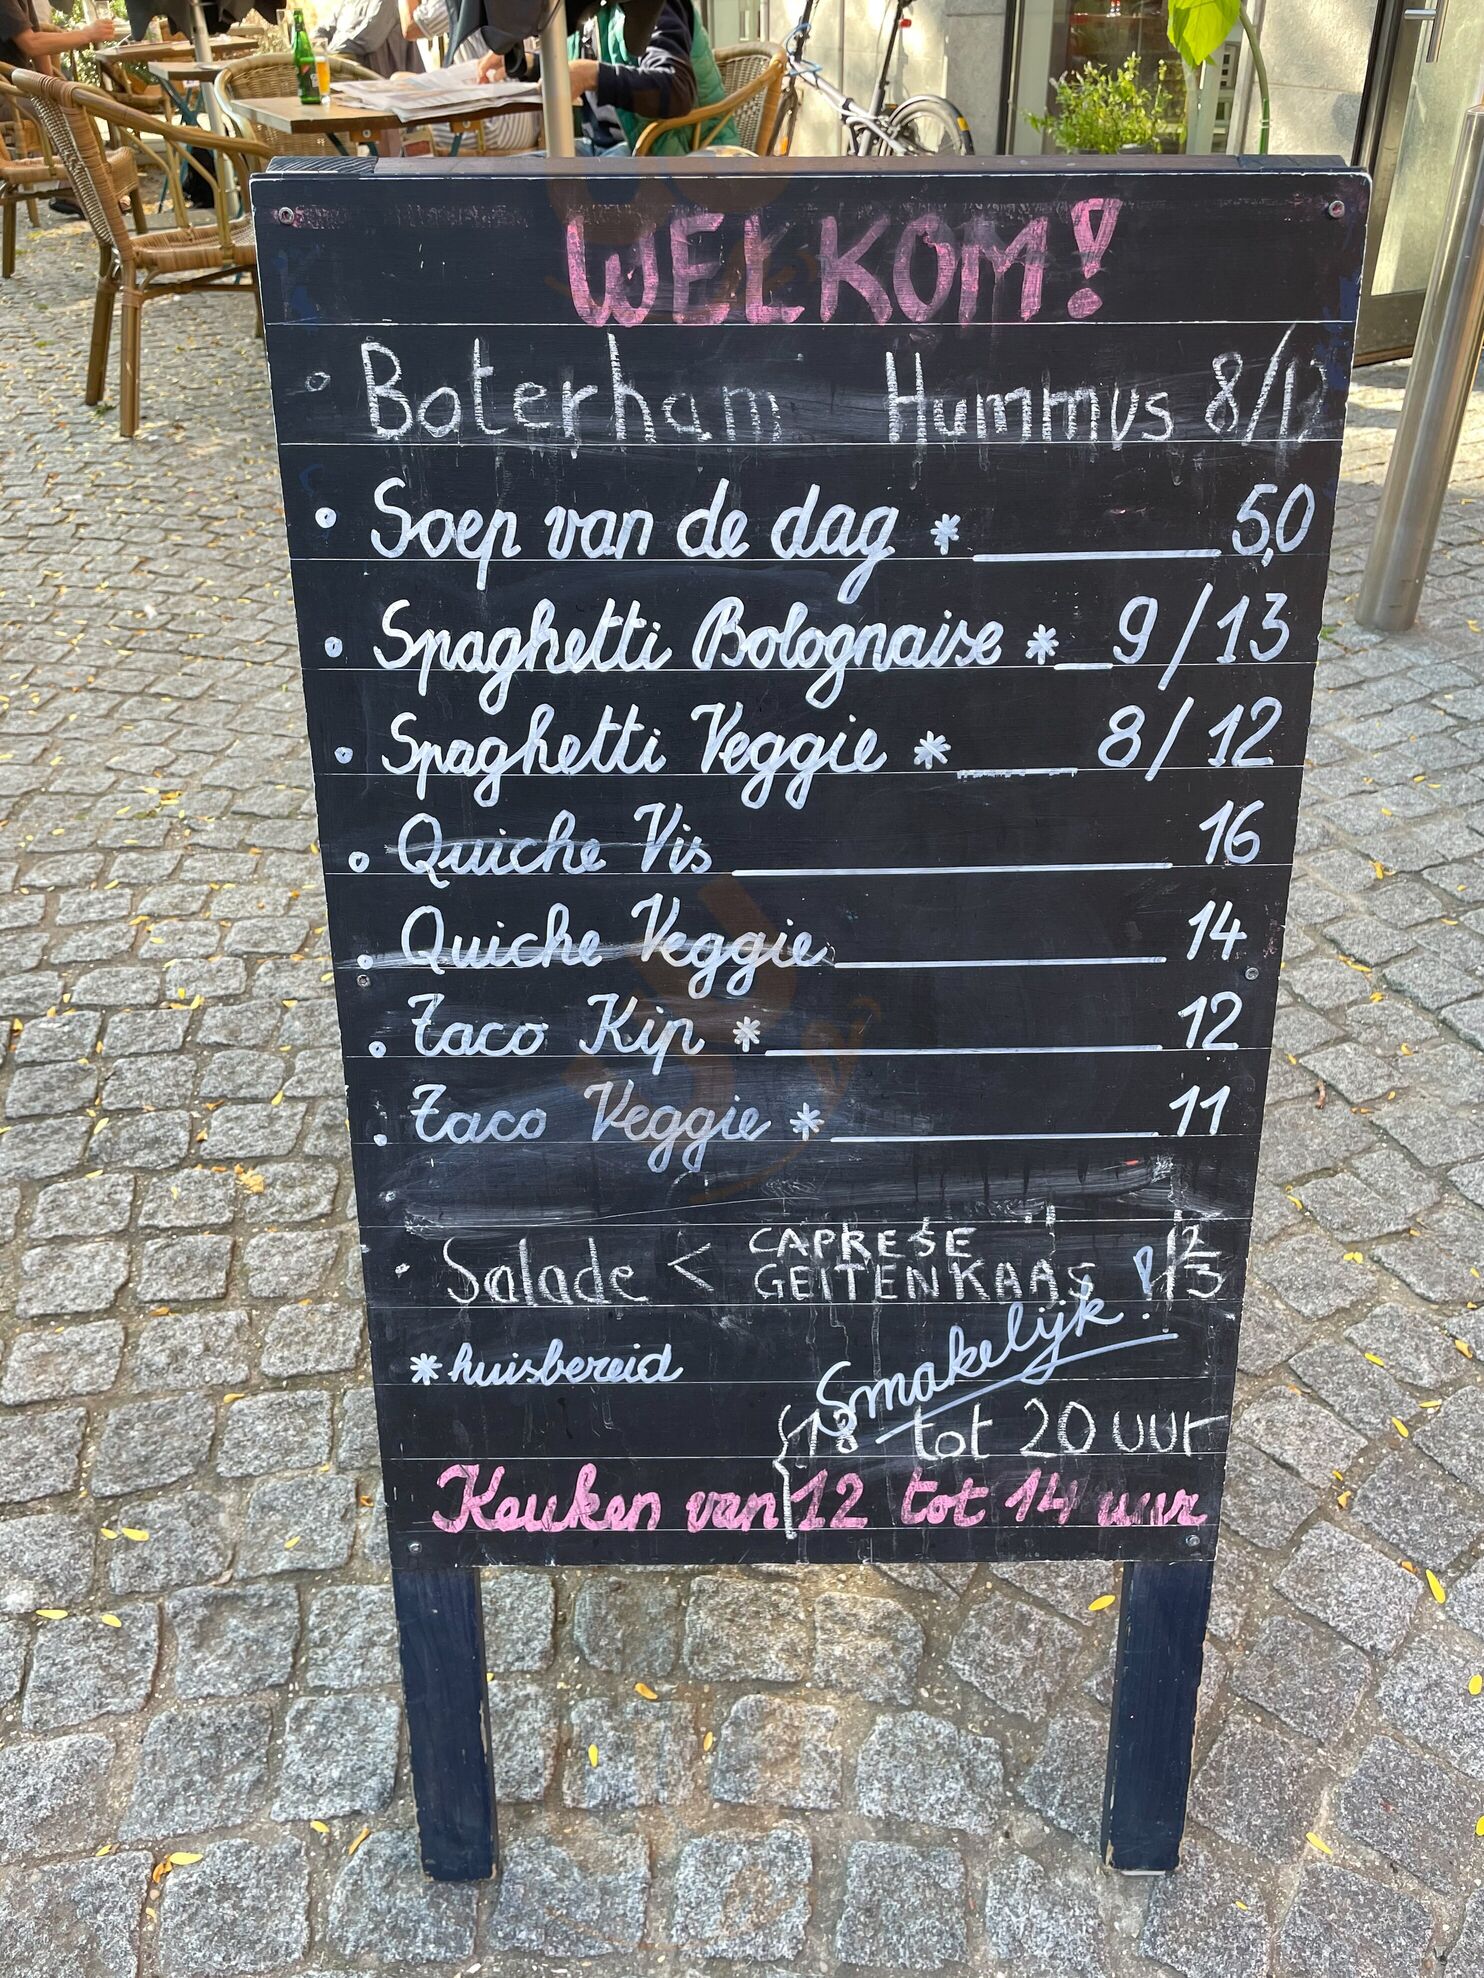 WELKOM!
Boterham Hummus 8/12
Soep van de dag * 5,0
Spaghetti Bolognaise * 9/13
Spaghetti Veggie * 8/12
Quiche Vis 16
Quiche Veggie 14
Taco Kip * 12
Taco Veggie * 11
Salade < CAPRESE
GEITENKAAS
* huisbereid
Smakelijk!
18 tot 20 uur
Keuken van 12 tot 14 uur